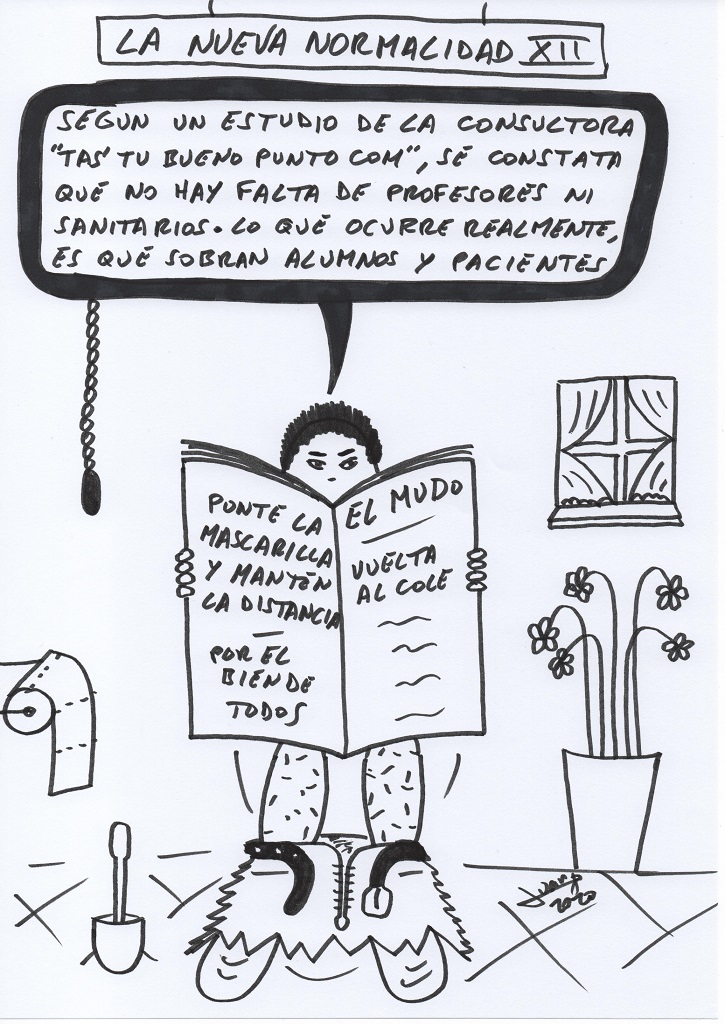 LA NUEVA NORMALIDAD XII
SEGUN UN ESTUDIO DE LA CONSULTORA
"TAS' TU BUENO PUNTO COM", SÉ CONSTATA
QUÉ NO HAY FALTA DE PROFESORES NI
SANITARIOS. LO QUÉ OCURRE REALMENTE,
ES QUÉ SOBRAN ALUMNOS Y PACIENTES
PONTE LA
MASCARILLA
Y MANTÉN
LA DISTANCIA
POR EL
BIEN DE
TODOS
EL MUDO
VUELTA
AL COLE
2020